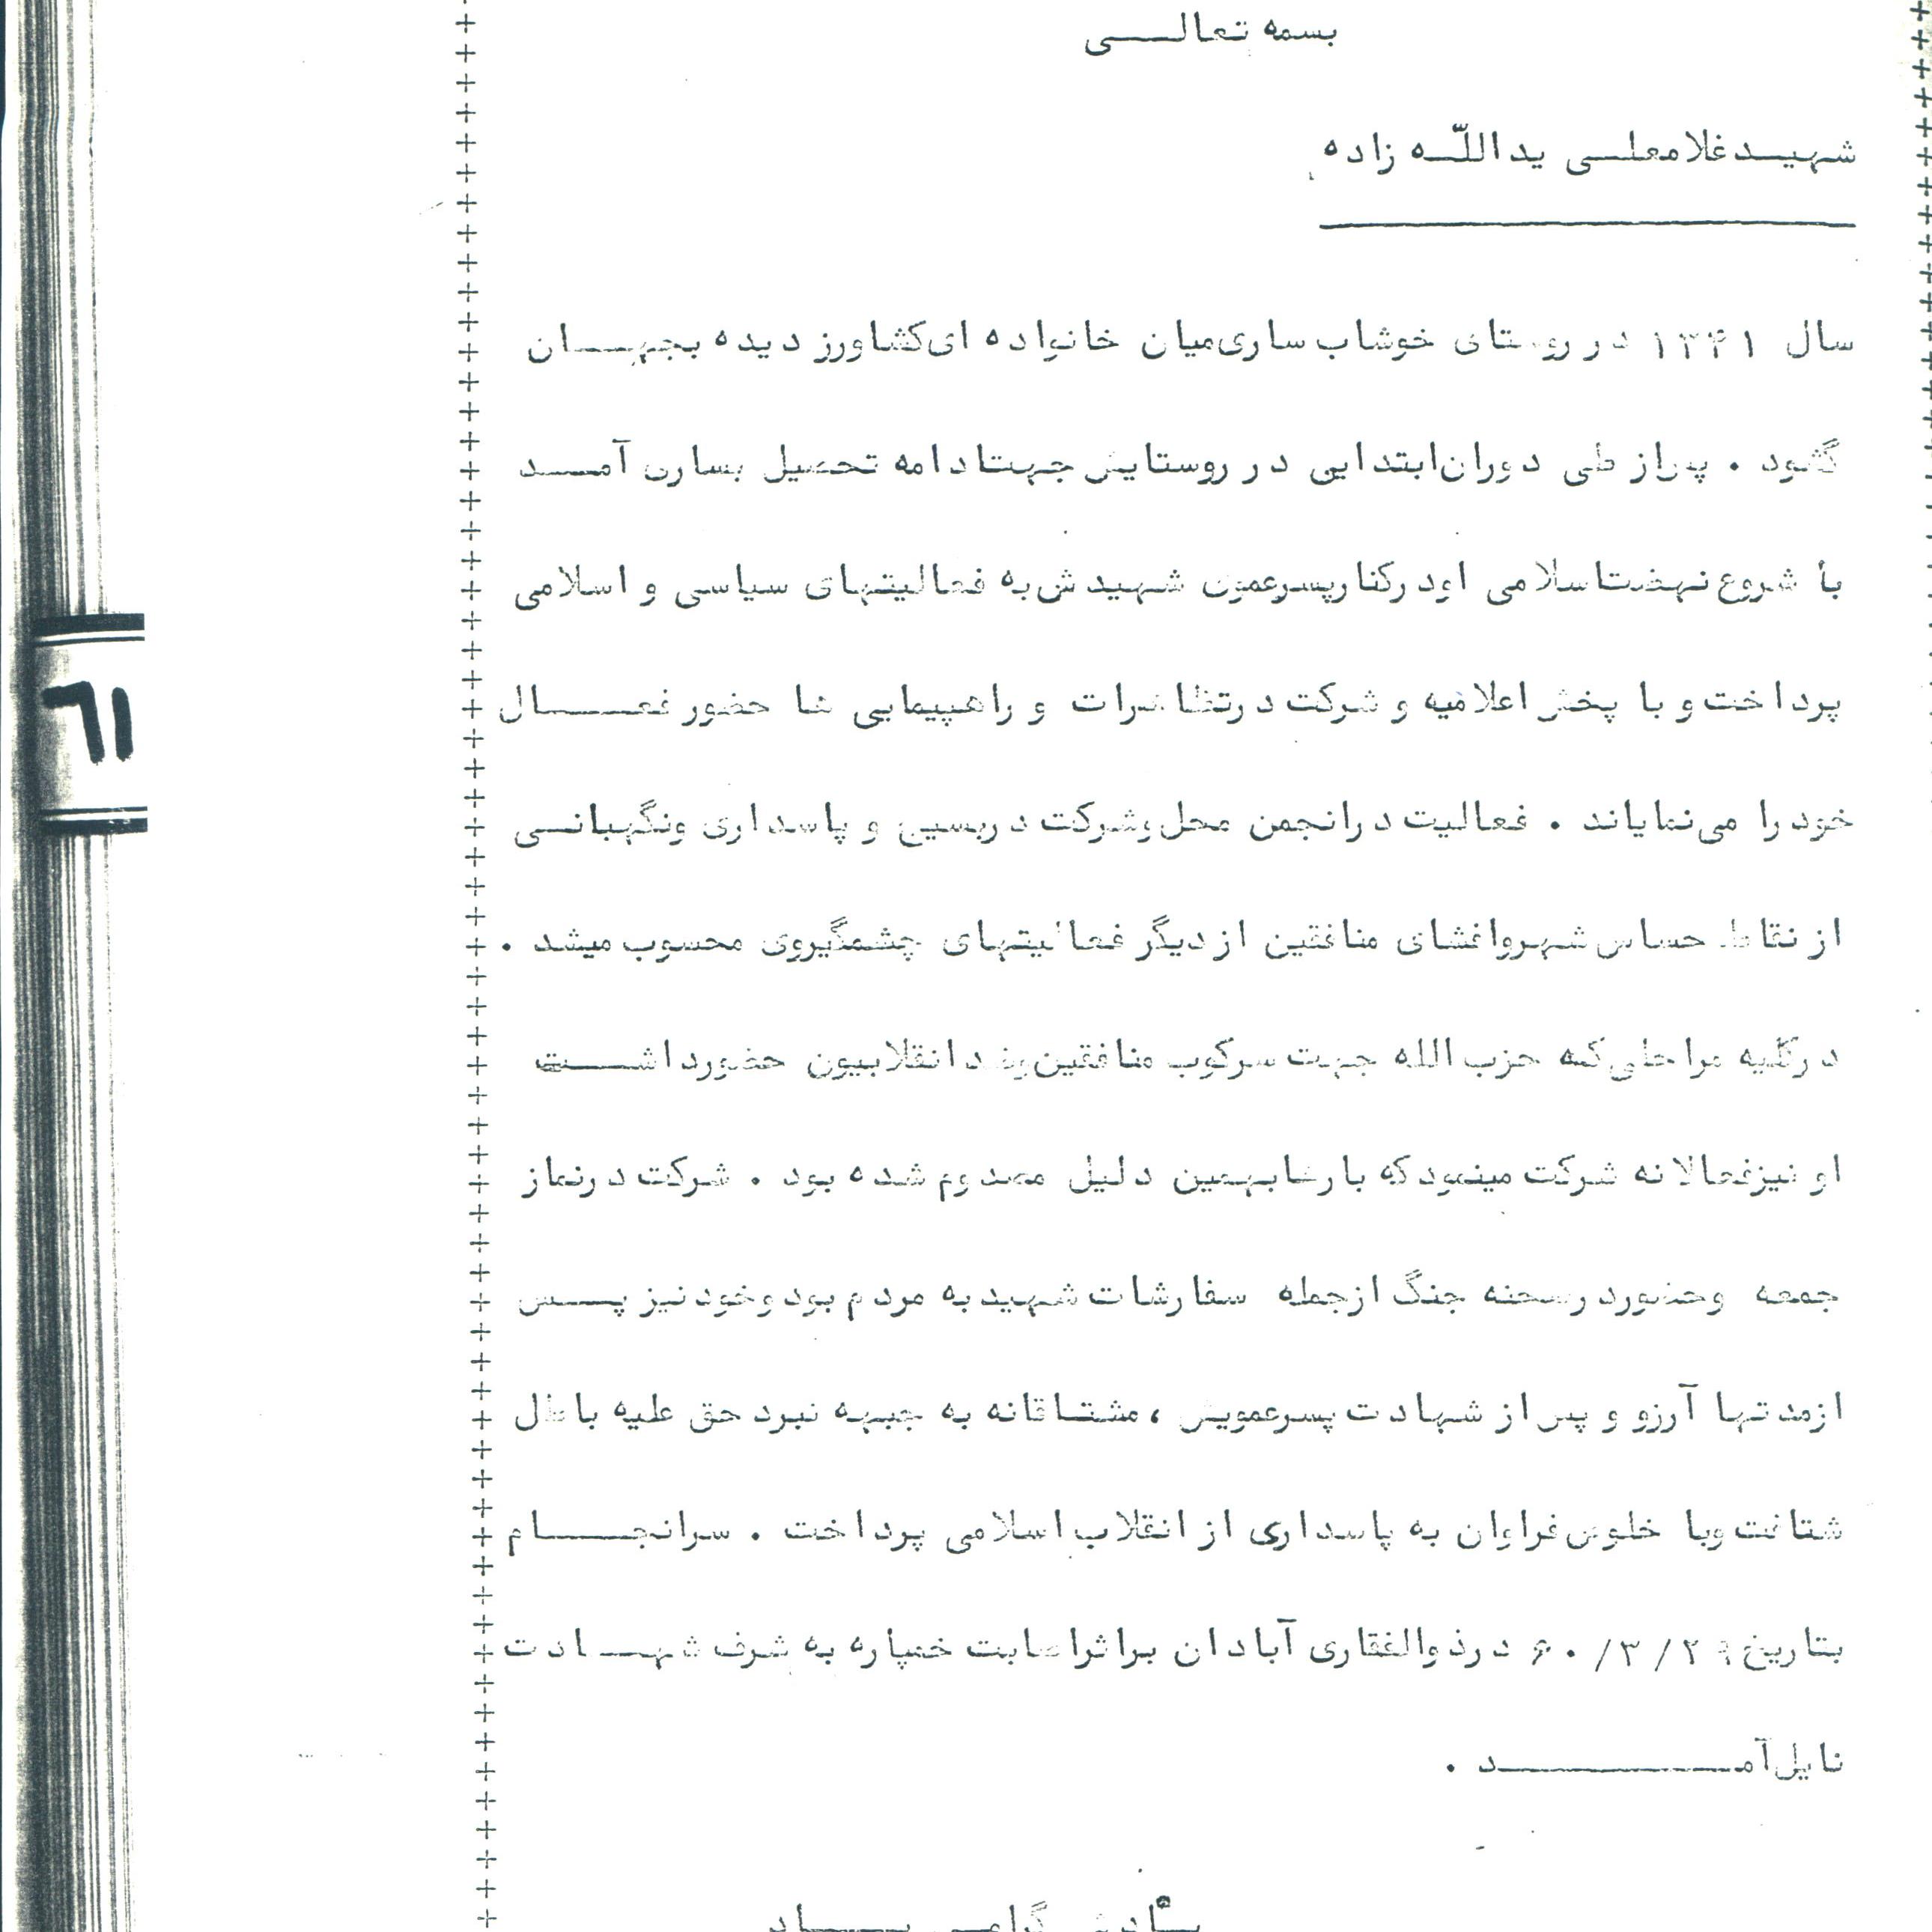 بسمه تعالی
شهید غلامعلی یداللّه زاده
سال ۱۳۴۱ در روستای خوشاب ساری میان خانواده ای کشاورز دیده بجهان
گشود . پس از طی دوران ابتدایی در روستایش جهت ادامه تحصیل بساری آمد
با شروع نهضت اسلامی او در کنار پسرعموی شهیدش به فعالیتهای سیاسی و اسلامی
پرداخت و با پخش اعلامیه و شرکت در تظاهرات و راهپیمایی ها حضور فعال
خود را می نمایاند . فعالیت در انجمن محل و شرکت در بسیج و پاسداری و نگهبانی
از نقاط حساس شهر و افشای منافقین از دیگر فعالیتهای چشمگیر وی محسوب میشد .
در کلیه مراحلی که حزب الله جهت سرکوب منافقین و ضد انقلابیون حضور داشت
او نیز فعالانه شرکت مینمود که بارها بهمین دلیل مصدوم شده بود . شرکت در نماز
جمعه و حضور در صحنه جنگ از جمله سفارشات شهید به مردم بود و خود نیز پس
از مدتها آرزو و پس از شهادت پسرعمویش ، مشتاقانه به جبهه نبرد حق علیه باطل
شتافت و با خلوص فراوان به پاسداری از انقلاب اسلامی پرداخت . سرانجام
بتاریخ ۶۰/۳/۲۹ در ذوالفقاری آبادان بر اثر اصابت خمپاره به شرف شهادت
نایل آمد .
یادش گرامی باد
٦١